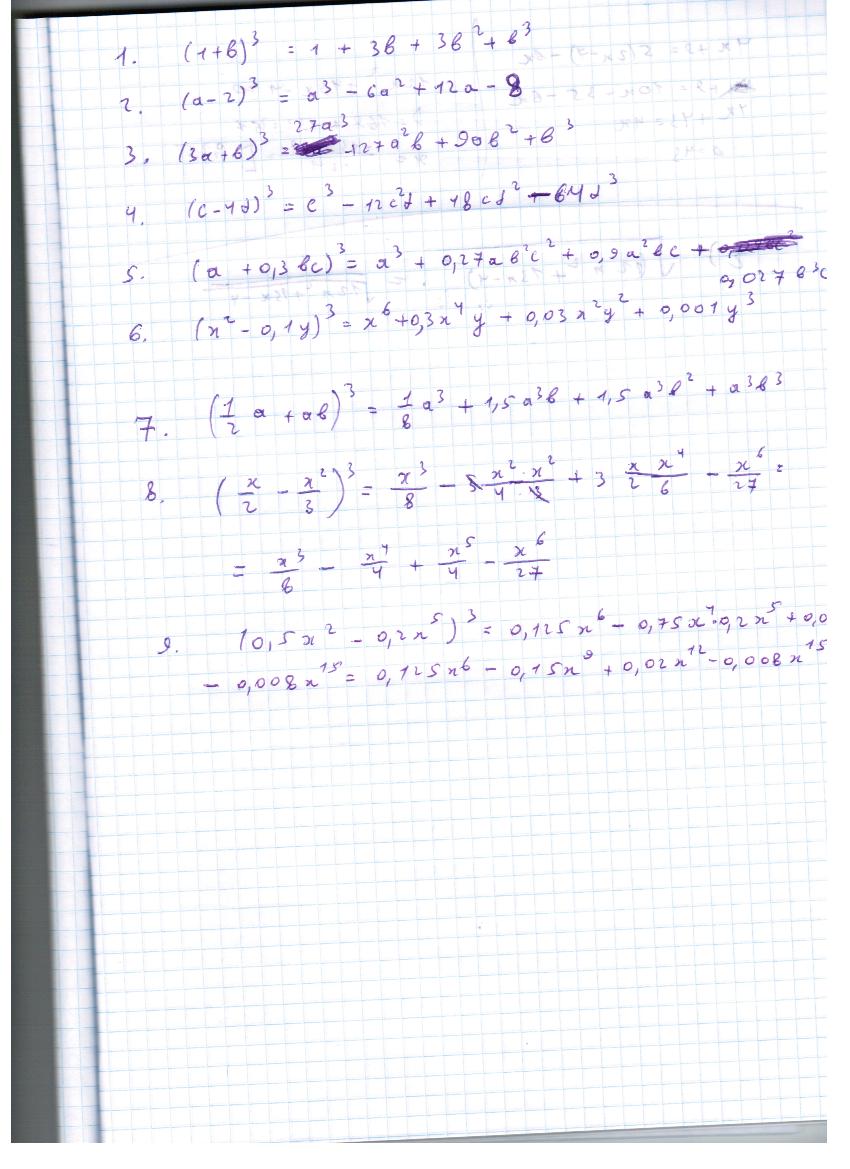 1. (1+в)³ = 1 + 3в + 3в² + в³
2. (a-2)³ = a³ - 6a² + 12a - 8
27a³
3. (3a+в)³ = +27a²в + 9aв² + в³
4. (c-4d)³ = c³ - 12c²d + 48cd² - 64d³
5. (a + 0,3вc)³ = a³ + 0,27aв²c² + 0,9a²вc +
0,027в³c
6. (x² - 0,1y)³ = x⁶ + 0,3x⁴y + 0,03x²y² + 0,001y³
7. (1/2 a + aв)³ = 1/8 a³ + 1,5a³в + 1,5a³в² + a³в³
8. (x/2 - x²/3)³ = x³/8 - 3 x²·x²/4·3 + 3 x x⁴/2 6 - x⁶/27 =
= x³/8 - x⁴/4 + x⁵/4 - x⁶/27
9. (0,5x² - 0,2x⁵)³ = 0,125x⁶ - 0,75x⁴·0,2x⁵ + 0,0
- 0,008x¹⁵ = 0,125x⁶ - 0,15x⁹ + 0,02x¹² - 0,008x¹⁵